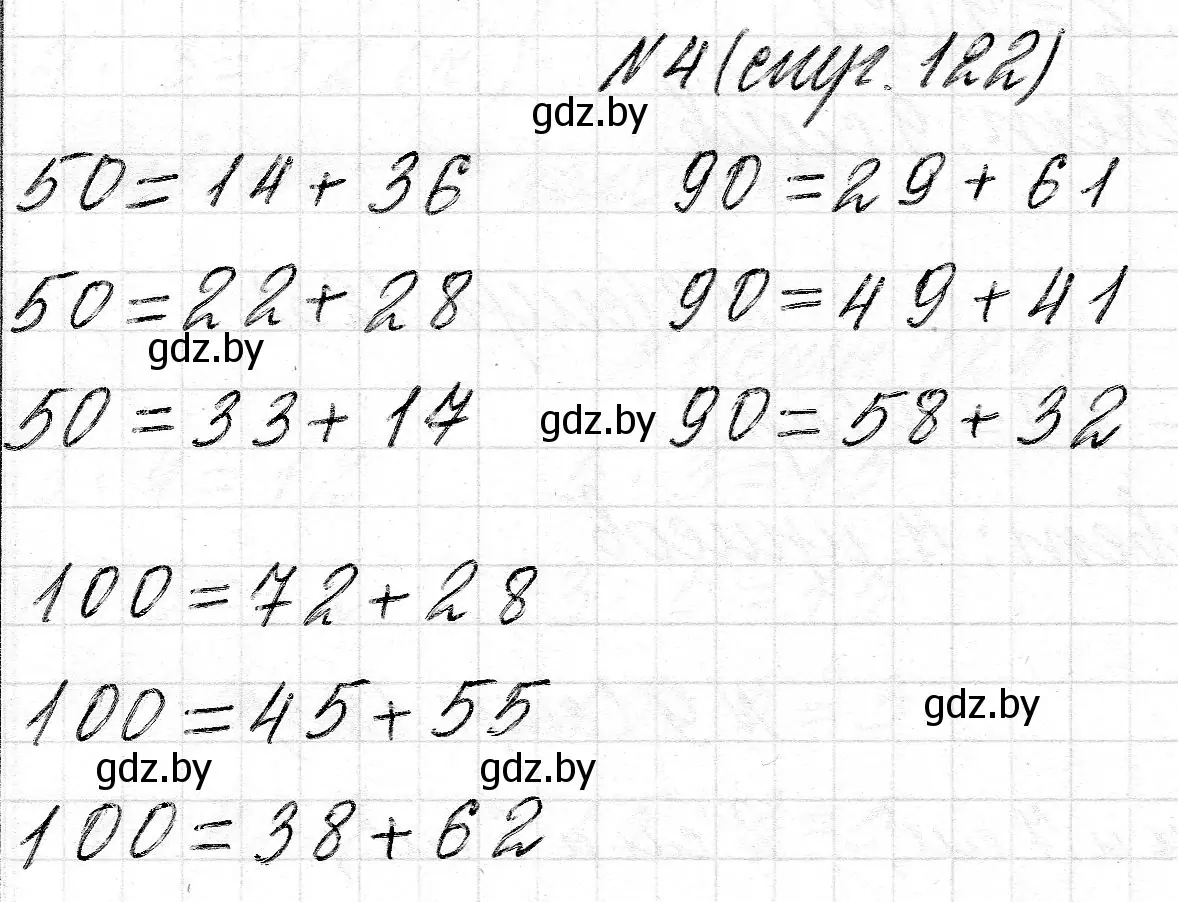 №4 (стр. 122)
gdz.by
50 = 14 + 36 90 = 29 + 61
50 = 22 + 28 90 = 49 + 41
gdz.by
50 = 33 + 17 gdz.by 90 = 58 + 32
100 = 72 + 28
100 = 45 + 55 gdz.by
gdz.by gdz.by
100 = 38 + 62